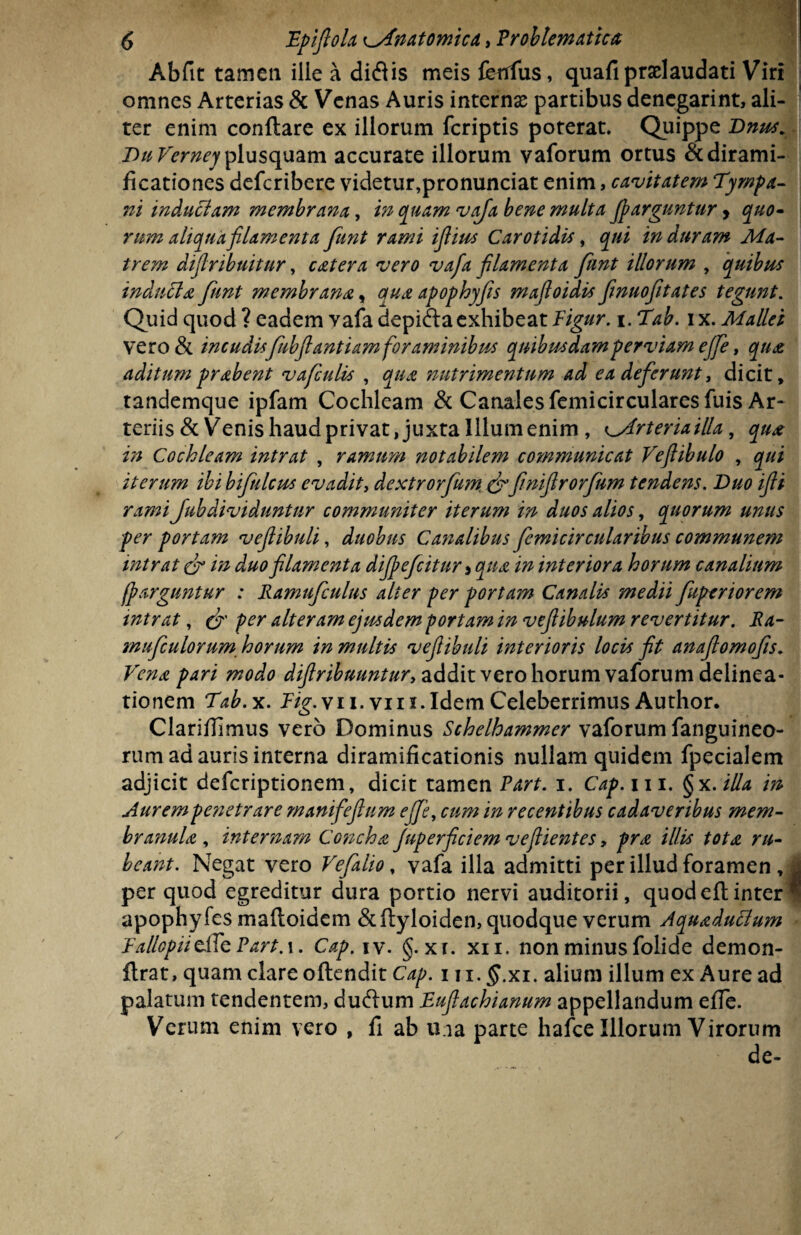 6 Epiſtola Anatomica, Problematica
Abſit tamen ille à dictis meis ſenſus, quaſi prælaudati Viri
omnes Arterias & Venas Auris internæ partibus denegarint, ali-
ter enim conſtare ex illorum ſcriptis poterat. Quippe Dnus.
Du Verney plusquam accurate illorum vaſorum ortus & dirami-
ficationes deſcribere videtur, pronunciat enim, cavitatem Tympa-
ni inductam membrana, in quam vaſa bene multa ſparguntur, quo-
rum aliqua filamenta ſunt rami iſtius Carotidis, qui in duram Ma-
trem diſtribuitur, cætera vero vaſa filamenta ſunt illorum, quibus
inductæ ſunt membranæ, quæ apophyſis maſtoidis ſinuoſitates tegunt.
Quid quod? eadem vaſa depicta exhibeat Figur. 1. Tab. IX. Mallei
vero & incudis ſubſtantiam foraminibus quibusdam perviam eſſe, quæ
aditum præbent vaſculis, quæ nutrimentum ad ea deferunt, dicit,
tandemque ipſam Cochleam & Canales ſemicirculares ſuis Ar-
teriis & Venis haud privat, juxta Illum enim, Arteria illa, quæ
in Cochleam intrat, ramum notabilem communicat Veſtibulo, qui
iterum ibi biſulcus evadit, dextrorſum & ſiniſtrorſum tendens. Duo iſti
rami ſubdividuntur communiter iterum in duos alios, quorum unus
per portam veſtibuli, duobus Canalibus ſemicircularibus communem
intrat & in duo filamenta diſpeſcitur, quæ in interiora horum canalium
ſparguntur: Ramuſculus alter per portam Canalis medii ſuperiorem
intrat, & per alteram ejusdem portam in veſtibulum revertitur. Ra-
muſculorum horum in multis veſtibuli interioris locis fit anaſtomoſis.
Venæ pari modo diſtribuuntur, addit vero horum vaſorum delinea-
tionem Tab. X. Fig. VII. VIII. Idem Celeberrimus Author.
Clariſſimus verò Dominus Schelhammer vaſorum ſanguineo-
rum ad auris interna diramificationis nullam quidem ſpecialem
adjicit deſcriptionem, dicit tamen Part. I. Cap. III. § X. illa in
Aurem penetrare manifeſtum eſſe, cum in recentibus cadaveribus mem-
branulæ, internam Conchæ ſuperficiem veſtientes, præ illis totæ ru-
beant. Negat vero Veſalio, vaſa illa admitti per illud foramen,
per quod egreditur dura portio nervi auditorii, quod eſt inter
apophyſes maſtoidem & ſtyloiden, quodque verum Aquæductum
Fallopii eſſe Part. I. Cap. IV. §. XI. XII. non minus ſolide demon-
ſtrat, quam clare oſtendit Cap. III. §. XI. alium illum ex Aure ad
palatum tendentem, ductum Euſtachianum appellandum eſſe.
Verum enim vero, ſi ab una parte haſce Illorum Virorum
de-